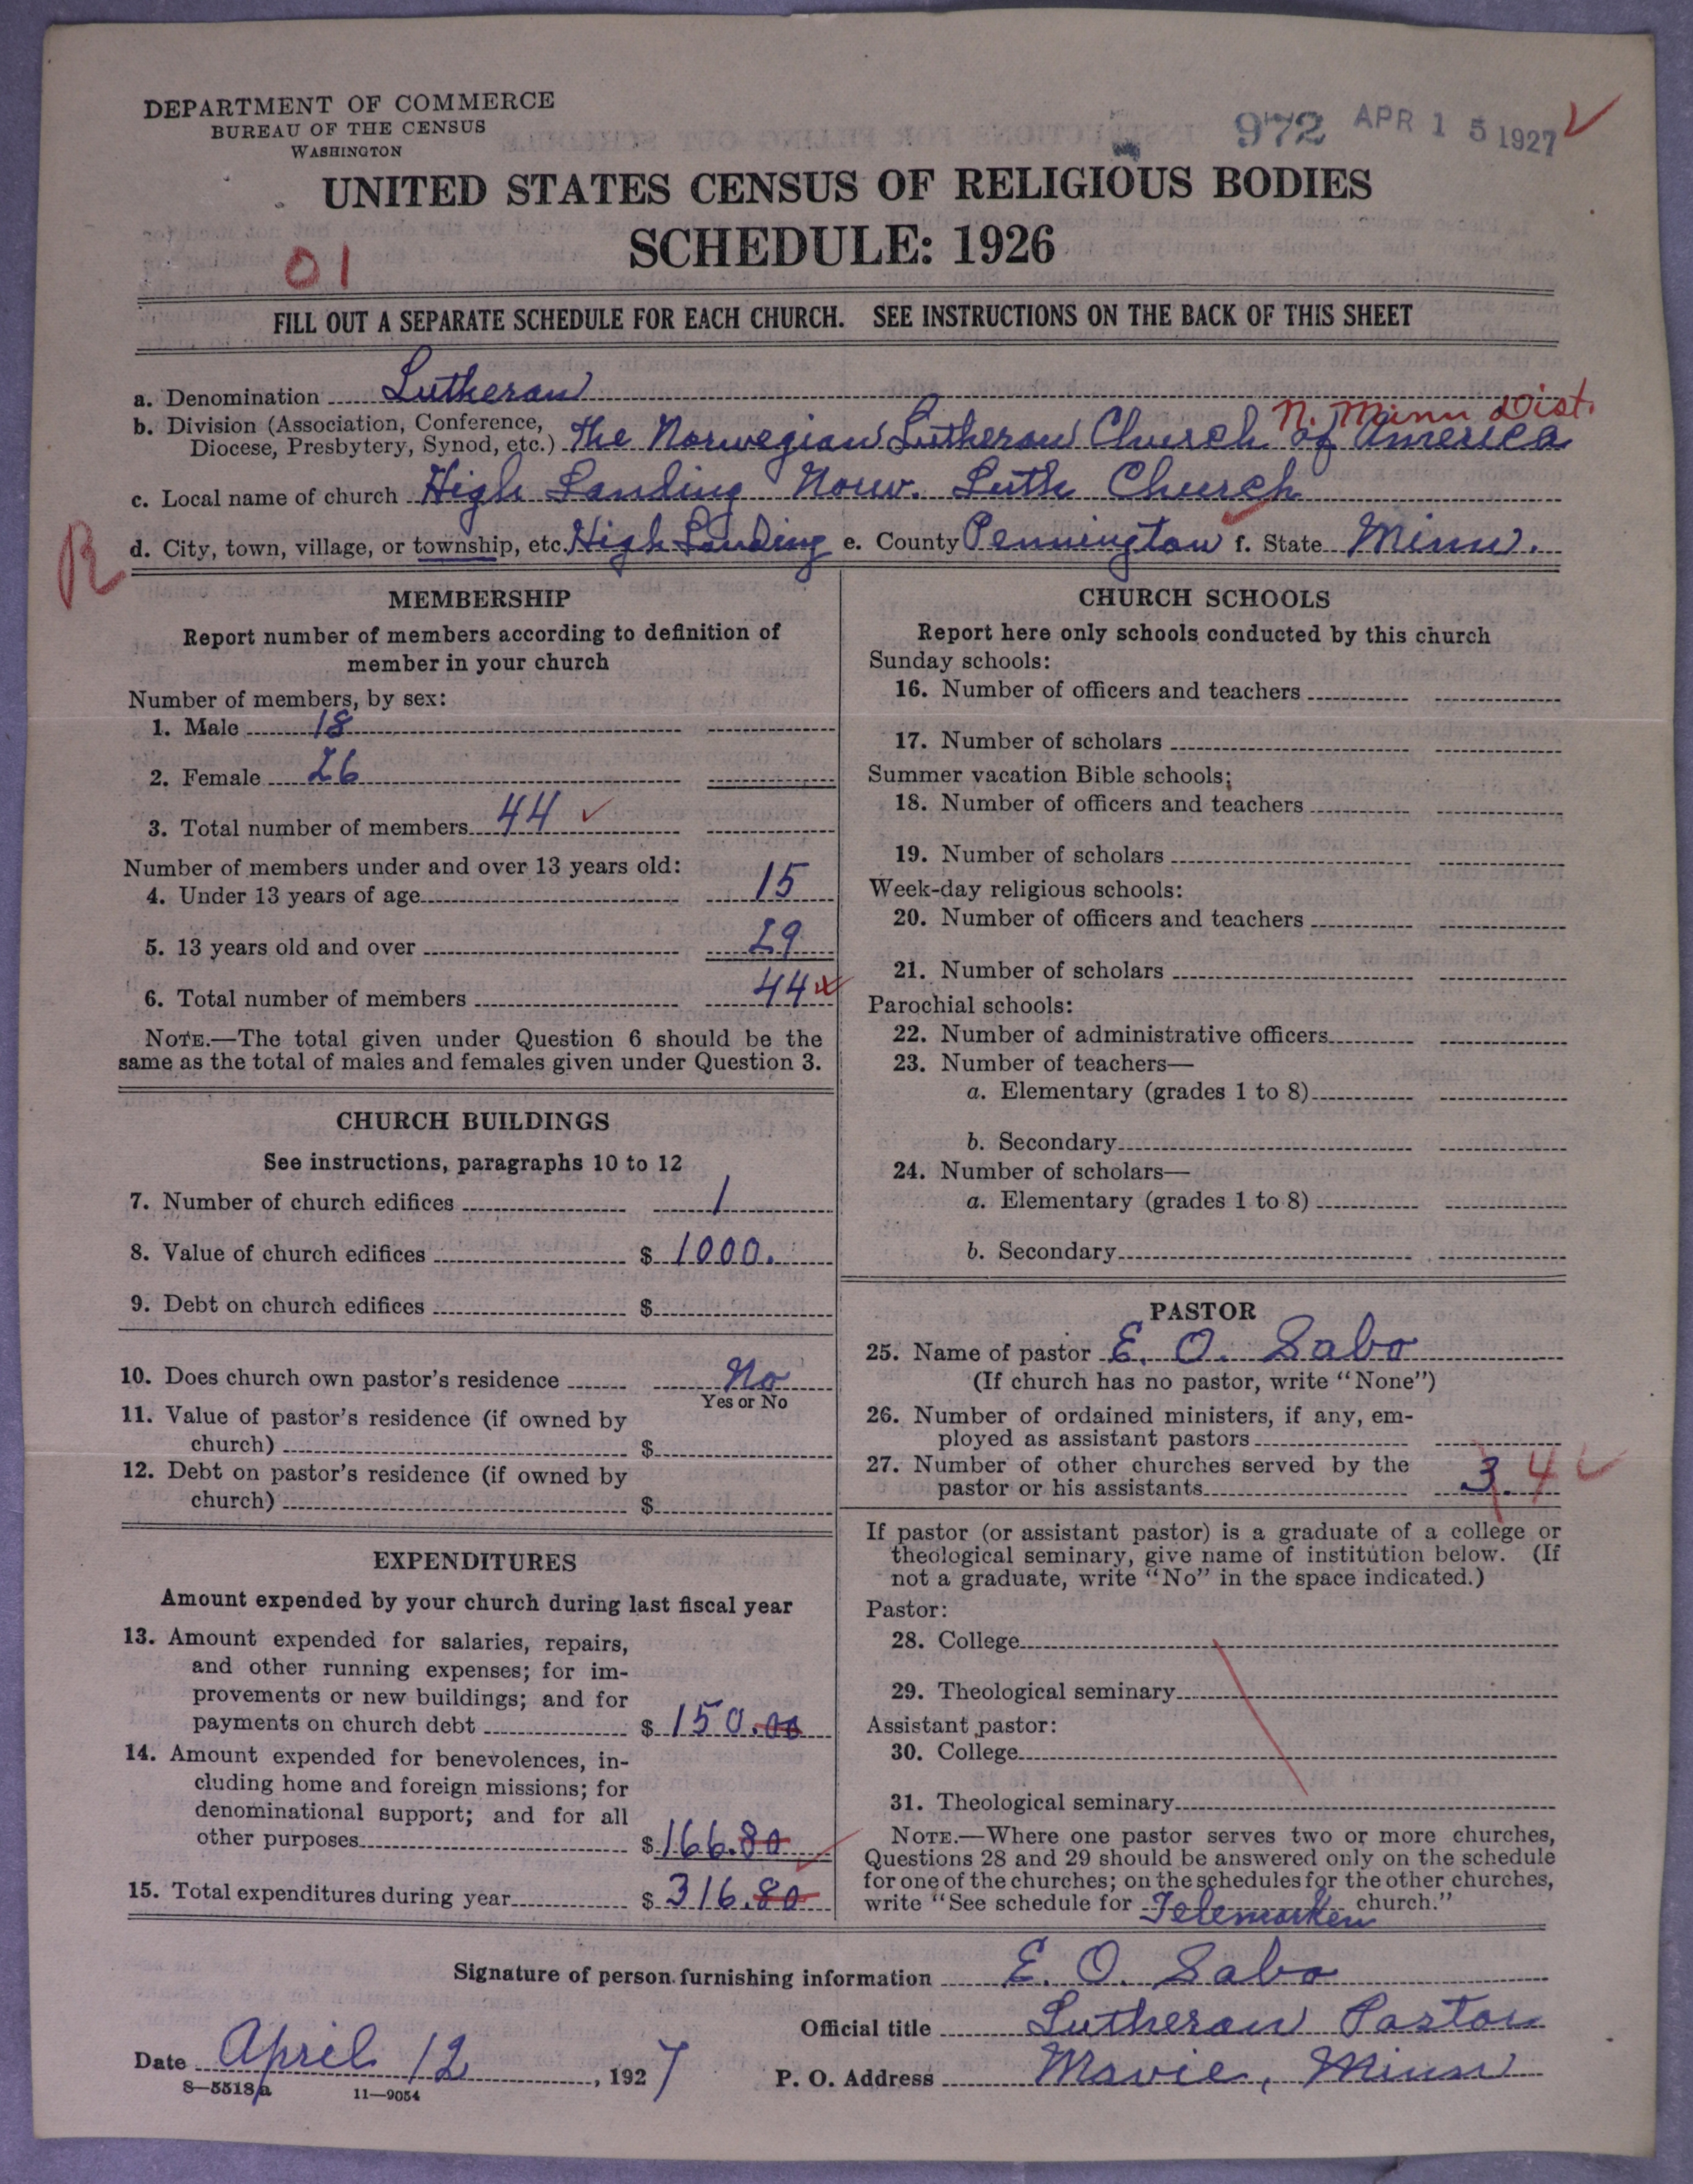 DEPARTMENT OF COMMERCE
BUREAU OF THE CENSUS
WASHINGTON
972 APR 15 1927
UNITED STATES CENSUS OF RELIGIOUS BODIES
SCHEDULE: 1926
01
FILL OUT A SEPARATE SCHEDULE FOR EACH CHURCH. SEE INSTRUCTIONS ON THE BACK OF THIS SHEET
a. Denomination Lutheran
N. Minn Dist.
b. Division (Association, Conference,
Diocese, Presbytery, Synod, etc.) The Norwegian Lutheran Church of America
c. Local name of church High Landing Norw. Luth Church
R
d. City, town, village, or township, etc. High Landing e. County Pennington f. State Minn.
MEMBERSHIP
Report number of members according to definition of
member in your church
Number of members, by sex:
1. Male 18
2. Female 26
3. Total number of members 44
Number of members under and over 13 years old:
4. Under 13 years of age 15
5. 13 years old and over 29
6. Total number of members 44
NOTE.—The total given under Question 6 should be the
same as the total of males and females given under Question 3.
CHURCH BUILDINGS
See instructions, paragraphs 10 to 12
7. Number of church edifices 1
8. Value of church edifices $ 1000.
9. Debt on church edifices $
10. Does church own pastor's residence No
Yes or No
11. Value of pastor's residence (if owned by
church) $
12. Debt on pastor's residence (if owned by
church) $
EXPENDITURES
Amount expended by your church during last fiscal year
13. Amount expended for salaries, repairs,
and other running expenses; for im-
provements or new buildings; and for
payments on church debt $ 150.00
14. Amount expended for benevolences, in-
cluding home and foreign missions; for
denominational support; and for all
other purposes $ 166.80
15. Total expenditures during year $ 316.80
CHURCH SCHOOLS
Report here only schools conducted by this church
Sunday schools:
16. Number of officers and teachers
17. Number of scholars
Summer vacation Bible schools:
18. Number of officers and teachers
19. Number of scholars
Week-day religious schools:
20. Number of officers and teachers
21. Number of scholars
Parochial schools:
22. Number of administrative officers
23. Number of teachers—
a. Elementary (grades 1 to 8)
b. Secondary
24. Number of scholars—
a. Elementary (grades 1 to 8)
b. Secondary
PASTOR
25. Name of pastor E. O. Sabo
(If church has no pastor, write "None")
26. Number of ordained ministers, if any, em-
ployed as assistant pastors
27. Number of other churches served by the
pastor or his assistants 3. 4
If pastor (or assistant pastor) is a graduate of a college or
theological seminary, give name of institution below. (If
not a graduate, write "No" in the space indicated.)
Pastor:
28. College
29. Theological seminary
Assistant pastor:
30. College
31. Theological seminary
NOTE.—Where one pastor serves two or more churches,
Questions 28 and 29 should be answered only on the schedule
for one of the churches; on the schedules for the other churches,
write "See schedule for Telemarken church."
Signature of person furnishing information E. O. Sabo
Official title Lutheran Pastor
Date April 12, 1927
P. O. Address Mavie, Minn
8—5518a 11—9054